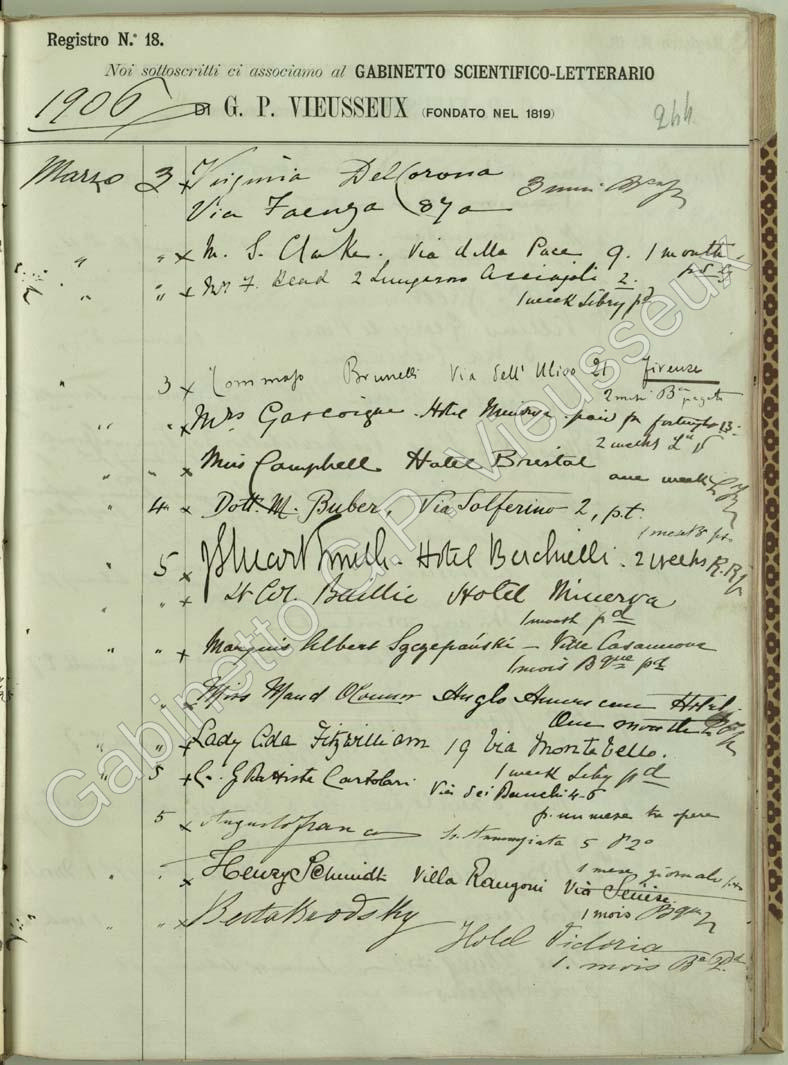 Registro N.° 18.
Noi sottoscritti ci associamo al GABINETTO SCIENTIFICO-LETTERARIO
1906 DI G. P. VIEUSSEUX (FONDATO NEL 1819)
244
Marzo 3 x Virginia Del Corona 3 mesi
Via Faenza 87a
" " x M. S. Clarke. Via della Pace 9. 1 month
" " x 2 Lungarno Acciajoli 2.
1 week Libry pd
" 3 x Tommaso Brunelli Via dell' Ulivo 21 Firenze
2 mesi Ba pagato
" " x Mrs Gascoigne Hotel Minerva paid for fortnight 13-
2 weeks
" " x Miss Campbell Hotel Bristol
one week
" 4 x Dott. M. Buber, Via Solferino 2, p.t.
1 mese
5 x J Stuart Smith - Hotel Berchielli. 2 weeks R.R.
" x Lt Col. Baillie Hotel Minerva
1 month pd
" " x Marquis Albert Szczepański - Villa Casanuova
1 mois Bque pd
" x Miss Maud O'Connor Anglo American Hotel.
One month
" " x Lady Ada Fitzwilliam 19 Via Montebello.
1 week Liby pd
" 5 x G. Battista Cartolari
Via dei Banchi 4-6
p. un mese tre opere
5 x Augusto Franco Ss. Annunziata 5 P. 2°
1 mese giornale
" x Henry Schmidt Villa Rangoni Via Senese
1 mois
" " x Berta Brodsky
Hotel Victoria
1. mois Ba
Gabinetto G.P. Vieusseux